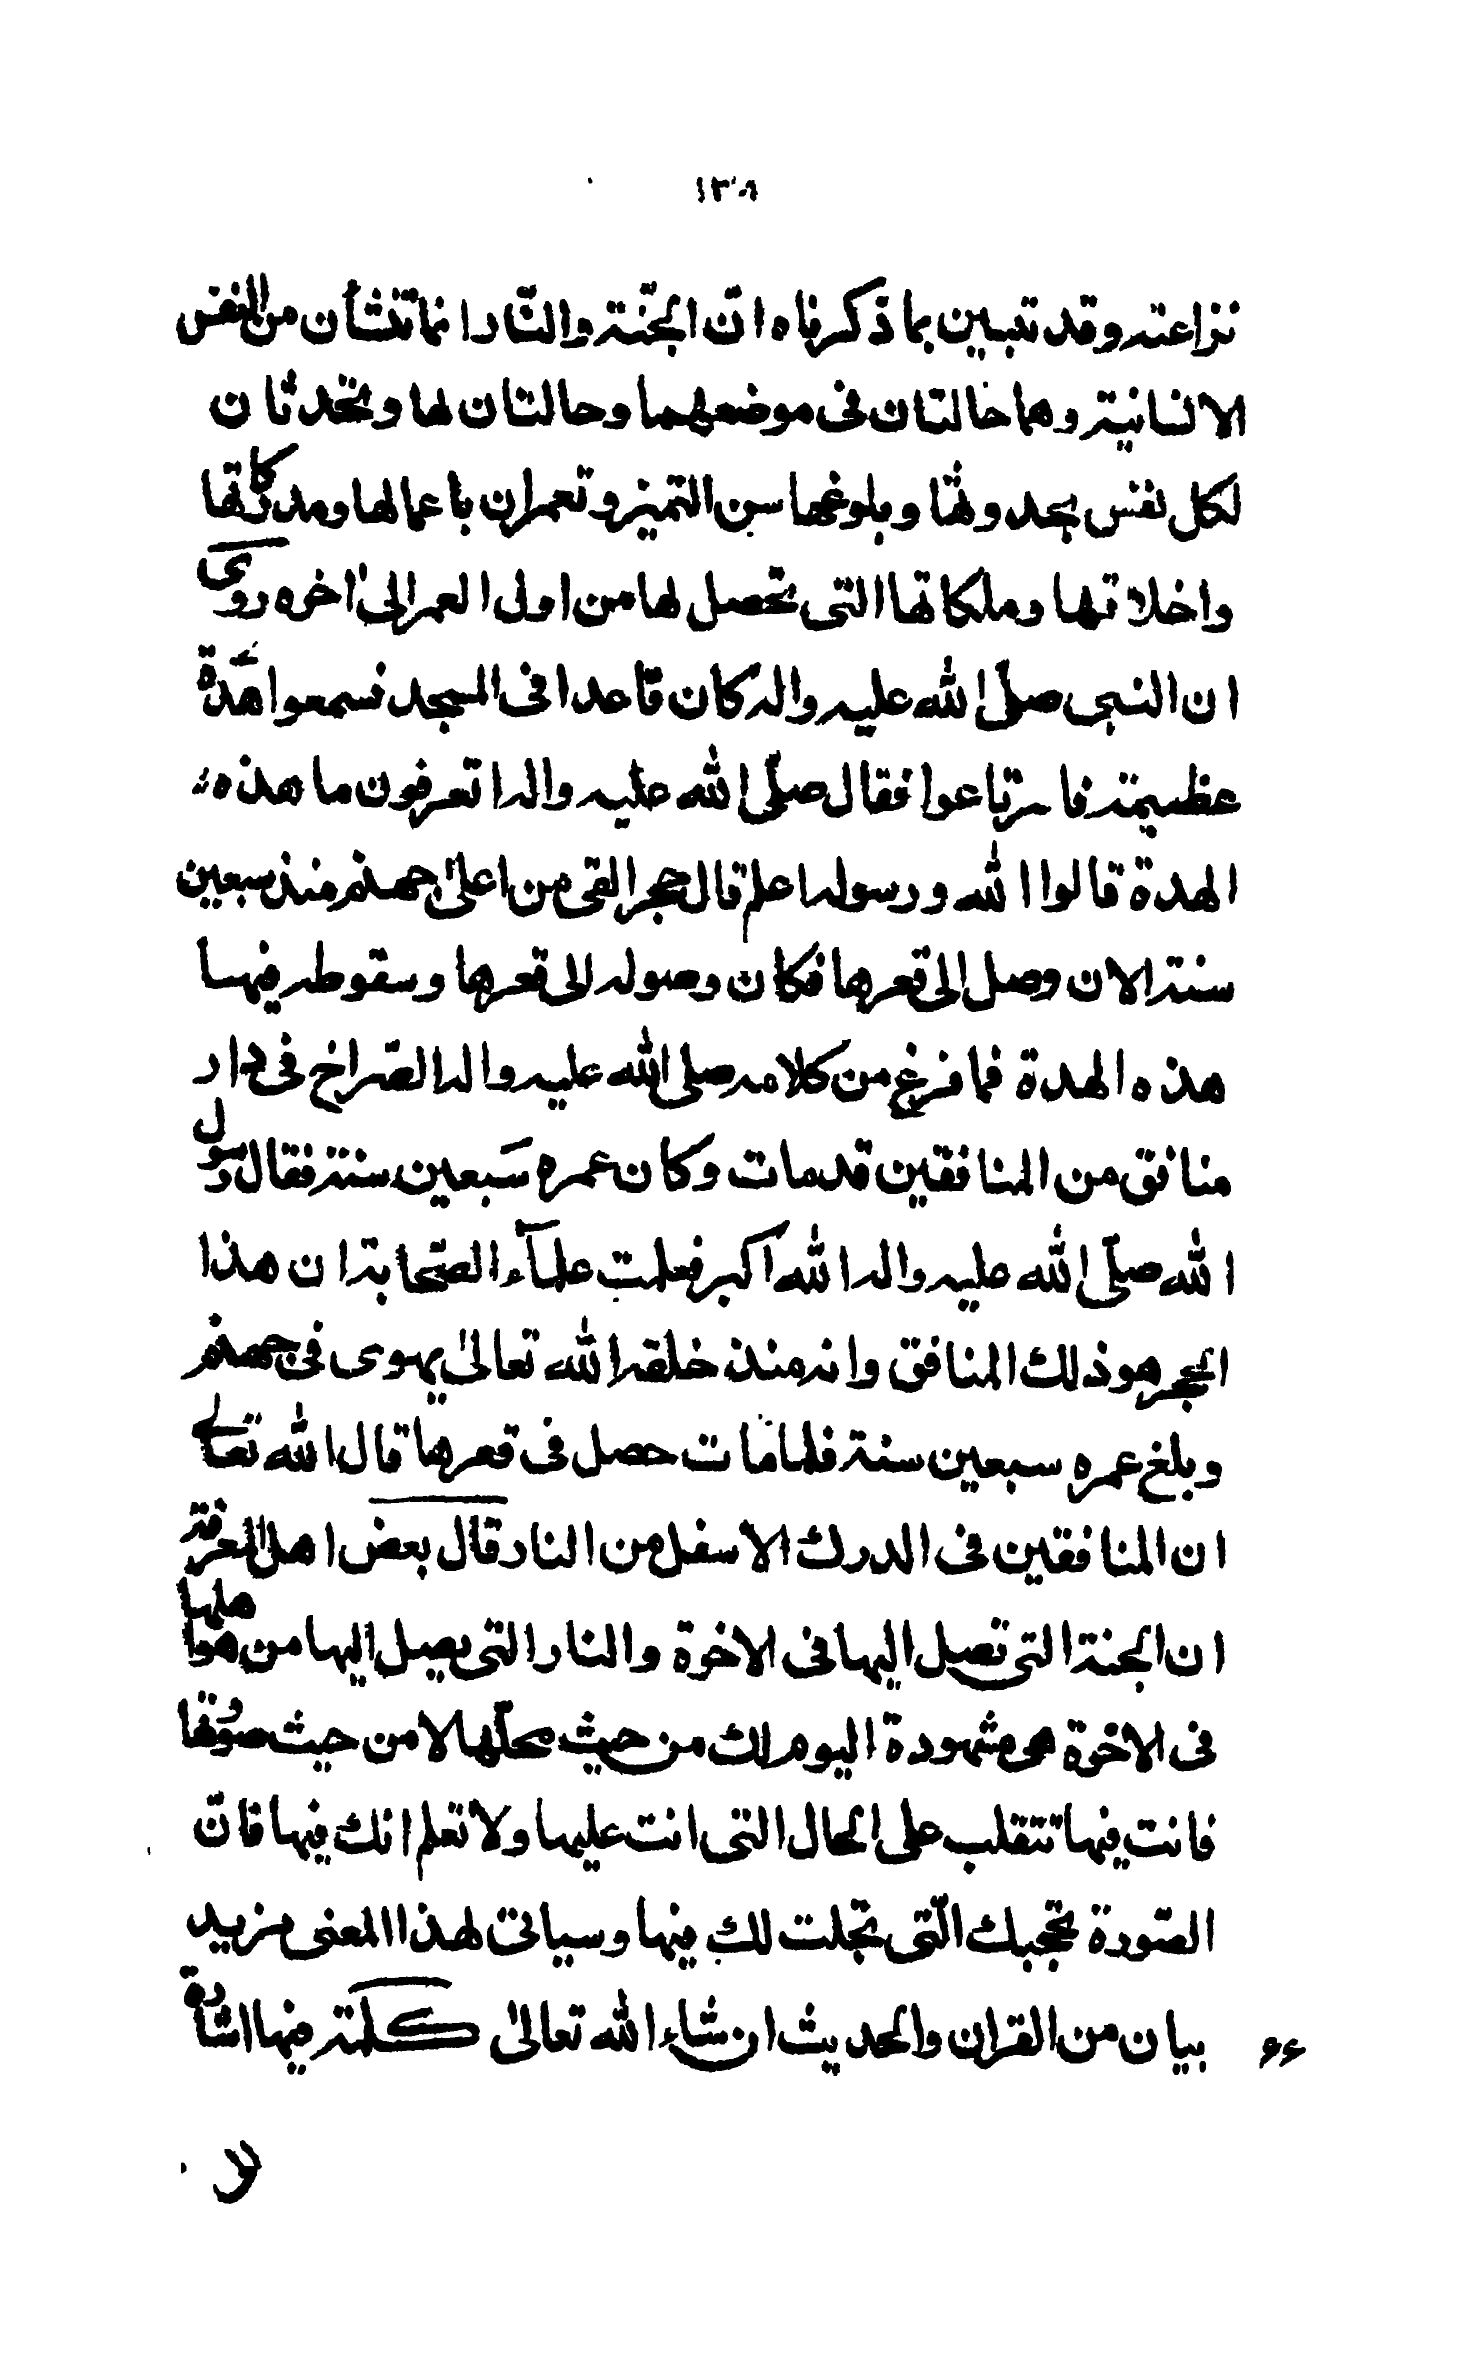 ١٣٨
نزاعته وقد تبين بما ذكرناه انّ الجّنة والنّار انما تنشأن من النفس
الانسانية وهما حالتان فى موضعهما وحالتان لها وتحدثان
لكل نفس بحدوثها وبلوغها سن التميز وتعمران باعمالها ومدركاتها
واخلاقها وملكاتها التى تحصل لها من اول العمر الى اخره روى
ان النبى صلّى الله عليه واله كان قاعدا فى المسجد فسمعوا هَدّة
عظيمة فارتاعوا فقال صلّى الله عليه واله اتعرفون ما هذه
الهدة قالوا الله ورسوله اعلم قال حجر القى من اعلى جهنم منذ سبعين
سنة الان وصل الى قعرها فكان وصوله الى قعرها وسقوطه فيها
هذه الهدة فما فرغ من كلامه صلى الله عليه واله الا الصّراخ فى دار
منافق من المنافقين قد مات وكان عمره سَبعين سنة فقال رسول
الله صلّى الله عليه واله الله اكبر فعلمت علمآء الصّحابة ان هذا
الحجر هو ذلك المنافق وانه منذ خلقه الله تعالى يهوى فى جهنم
وبلغ عمره سبعين سنة فلما مات حصل فى قعرها قال الله تعالى
ان المنافقين فى الدرك الاسفل من النار قال بعض اهل المعرفة
ان الجنة التى تصل اليها فى الاخرة والنار التى يصل اليها من هو اهلها
فى الاخرة هو مشهودة اليوم لك من حيث محلّها لا من حيث صورتها
فانت فيها تتقلب على الحال التى انت عليها ولا تعلم انك فيها فانّ
الصّورة تحجبك الّتى تجلت لك فيها وسياتى لهذا المعنى مزيد
بيان من القران والحديث ان شاء الله تعالى كلمة فيها اشارة